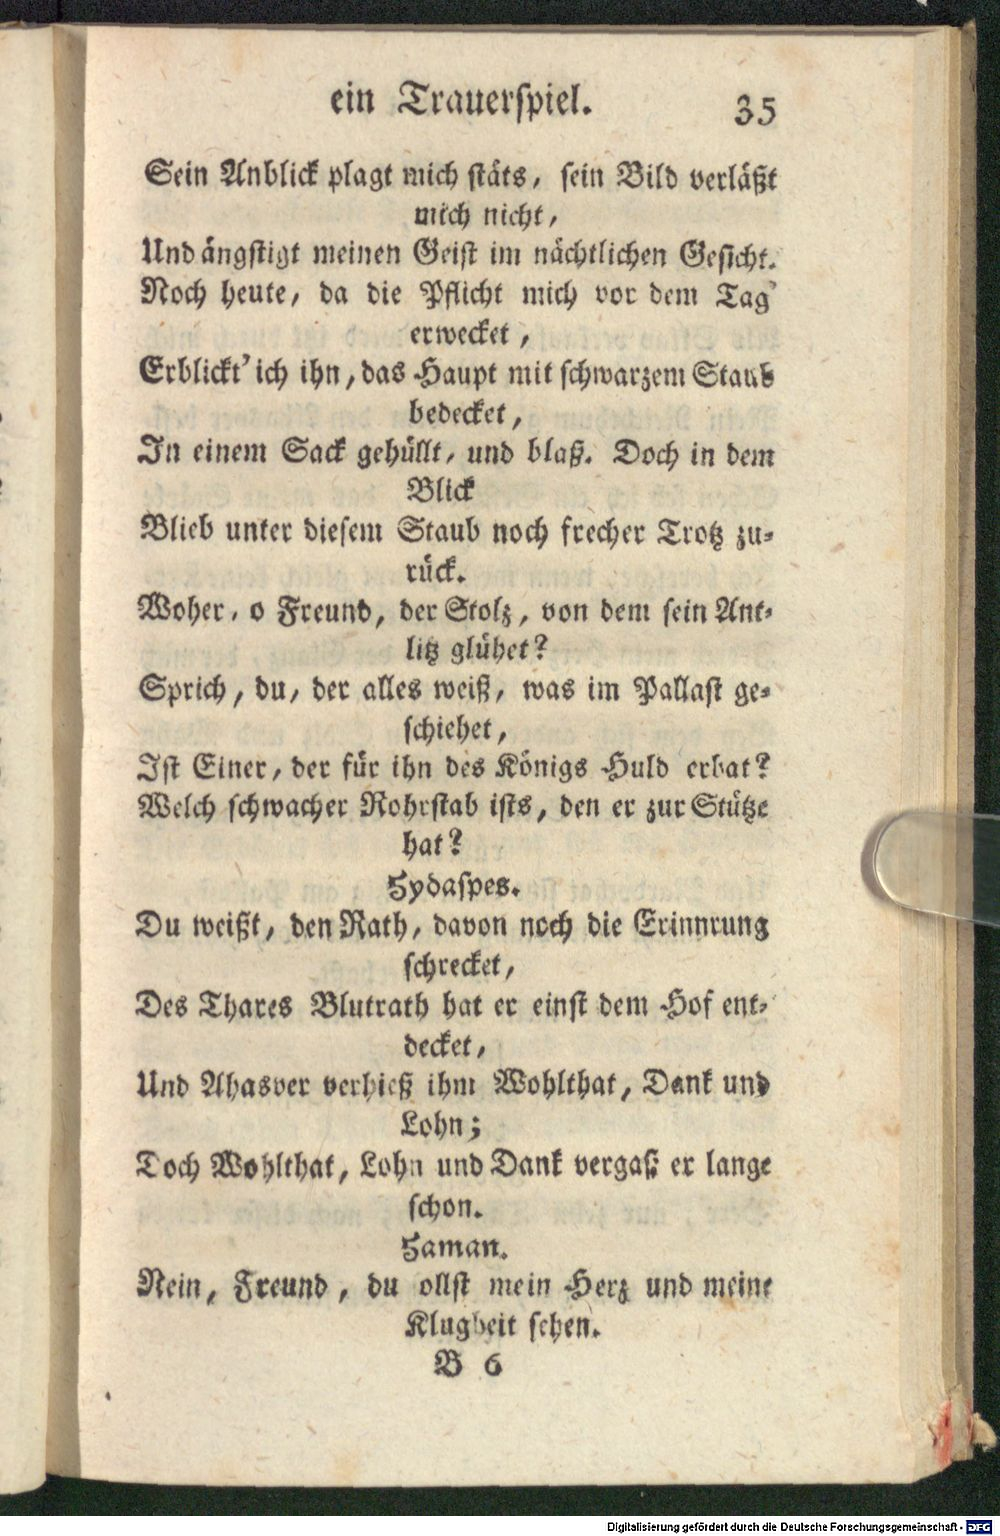 ein Trauerspiel. 35
Sein Anblick plagt mich stäts, sein Bild verläßt
mich nicht,
Und ängstigt meinen Geist im nächtlichen Gesicht.
Noch heute, da die Pflicht mich vor dem Tag
erwecket,
Erblickt' ich ihn, das Haupt mit schwarzem Staub
bedecket,
In einem Sack gehüllt, und blaß. Doch in dem
Blick
Blieb unter diesem Staub noch frecher Trotz zu-
rück.
Woher, o Freund, der Stolz, von dem sein Ant-
litz glühet?
Sprich, du, der alles weiß, was im Pallast ge-
schiehet,
Ist Einer, der für ihn des Königs Huld erbat?
Welch schwacher Rohrstab ists, den er zur Stütze
hat?
Hydaspes.
Du weißt, den Rath, davon noch die Erinnrung
schrecket,
Des Thares Blutrath hat er einst dem Hof ent-
decket,
Und Ahasver verhieß ihm Wohlthat, Dank und
Lohn;
Doch Wohlthat, Lohn und Dank vergaß er lange
schon.
Haman.
Nein, Freund, du ollst mein Herz und meine
Klugheit sehen.
B 6
Digitalisierung gefördert durch die Deutsche Forschungsgemeinschaft - DFG